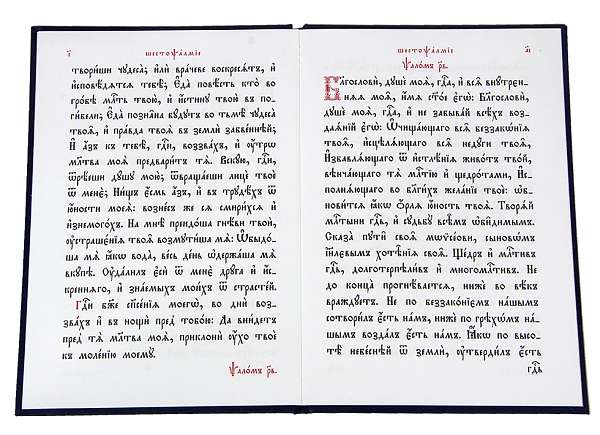 і҃
шестоѱа́лмїе
твори́ши чꙋдеса̀; и҆лѝ вра́чеве воскреся́тъ, и҆
и҆сповѣ́дѧтсѧ тебѣ̀; Є҆да̀ повѣ́сть кто̀ во
гро́бѣ млⷭ҇ть твою̀, и҆ и҆́стинꙋ твою̀ въ по-
ги́бели; Є҆да̀ позна̑на бꙋ́дꙋтъ во тьмѣ̀ чꙋдеса̀
твоѧ̑, и҆ пра́вда твоѧ̀ въ землѝ забве́ннѣй;
И҆ а҆́зъ къ тебѣ̀, гдⷭ҇и, воззва́хъ, и҆ оу҆́трѡ
мл҃тва моѧ̀ предвари́тъ тѧ̀. Вскꙋ́ю, гдⷭ҇и,
ѿрѣ́еши дꙋ́шꙋ мою̀; ѿвраща́еши лицѐ твоѐ
ѿ менє̀; Ни́щъ є҆́смь а҆́зъ, и҆ въ трꙋдѣ́хъ ѿ
ю҆́ности моеѧ̀: возне́съ же сѧ смири́хсѧ и҆
и҆знемого́хъ. На мнѣ̀ преидо́ша гнѣ́ви твоѝ,
оу҆страшє́нїѧ твоѧ̑ возмꙋти́ша мѧ̀: Ѡ҆быдо́-
ша мѧ̀ ꙗ҆́кѡ вода̀, ве́сь де́нь ѡ҆держа́ша мѧ̀
вкꙋ́пѣ. Оу҆да́лилъ є҆сѝ ѿ менє̀ дрꙋ́га и҆ и҆́с-
креннѧго, и҆ зна́емыхъ мои́хъ ѿ страсте́й.
Гдⷭ҇и бж҃е спⷭ҇е́нїѧ моегѡ̀, во днѝ воз-
зва́хъ и҆ въ нощѝ пред̾ тобо́ю: Да вни́детъ
пред̾ тѧ̀ мл҃тва моѧ̀, приклонѝ оу҆́хо твоѐ
къ моле́нїю моемꙋ̀.
ѱало́мъ р҃в.
шестоѱа́лмїе
а҃і
ѱало́мъ р҃в.
Бл҃гословѝ, дꙋшѐ моѧ̀, гдⷭ҇а, и҆ всѧ̑ внꙋ́трєн-
нѧѧ моѧ̑, и҆́мѧ ст҃о́е є҆гѡ̀: Бл҃гословѝ,
дꙋшѐ моѧ̀, гдⷭ҇а, и҆ не забыва́й всѣ́хъ воз-
даѧ́нїй є҆гѡ̀: Ѡ҆чища́ющаго всѧ̑ беззакѡ́нїѧ
твоѧ̑, и҆сцѣлѧ́ющаго всѧ̑ недꙋ́ги твоѧ̑,
И҆збавлѧ́ющаго ѿ и҆стлѣ́нїѧ живо́тъ тво́й,
вѣнча́ющаго тѧ̀ млⷭ҇тїю и҆ щедро́тами, И҆с-
полнѧ́ющаго во бл҃ги́хъ жела́нїе твоѐ: ѡ҆б-
нови́тсѧ ꙗ҆́кѡ ѻ҆́рлѧ ю҆́ность твоѧ̀. Творѧ́й
млⷭ҇тыни гдⷭ҇ь, и҆ сꙋдьбꙋ̀ всѣ́мъ ѡ҆би̑димымъ.
Сказа̀ пꙋти̑ своѧ̑ мѡѷсе́ови, сыновѡ́мъ
і҆и҃лєвымъ хотѣ̑нїѧ своѧ̑. Ще́дръ и҆ млⷭ҇тивъ
гдⷭ҇ь, долготерпѣли́въ и҆ многомлⷭ҇тивъ. Не
до конца̀ прогнѣ́ваетсѧ, нижѐ во вѣ́къ
враждꙋ́етъ. Не по беззако́нїємъ на́шымъ
сотвори́лъ є҆́сть на́мъ, нижѐ по грѣхѡ́мъ на́-
шымъ возда́лъ є҆́сть на́мъ. Ꙗ҆́кѡ по высо-
тѣ̀ небе́снѣй ѿ землѝ, оу҆тверди́лъ є҆́сть
гдⷭ҇ь